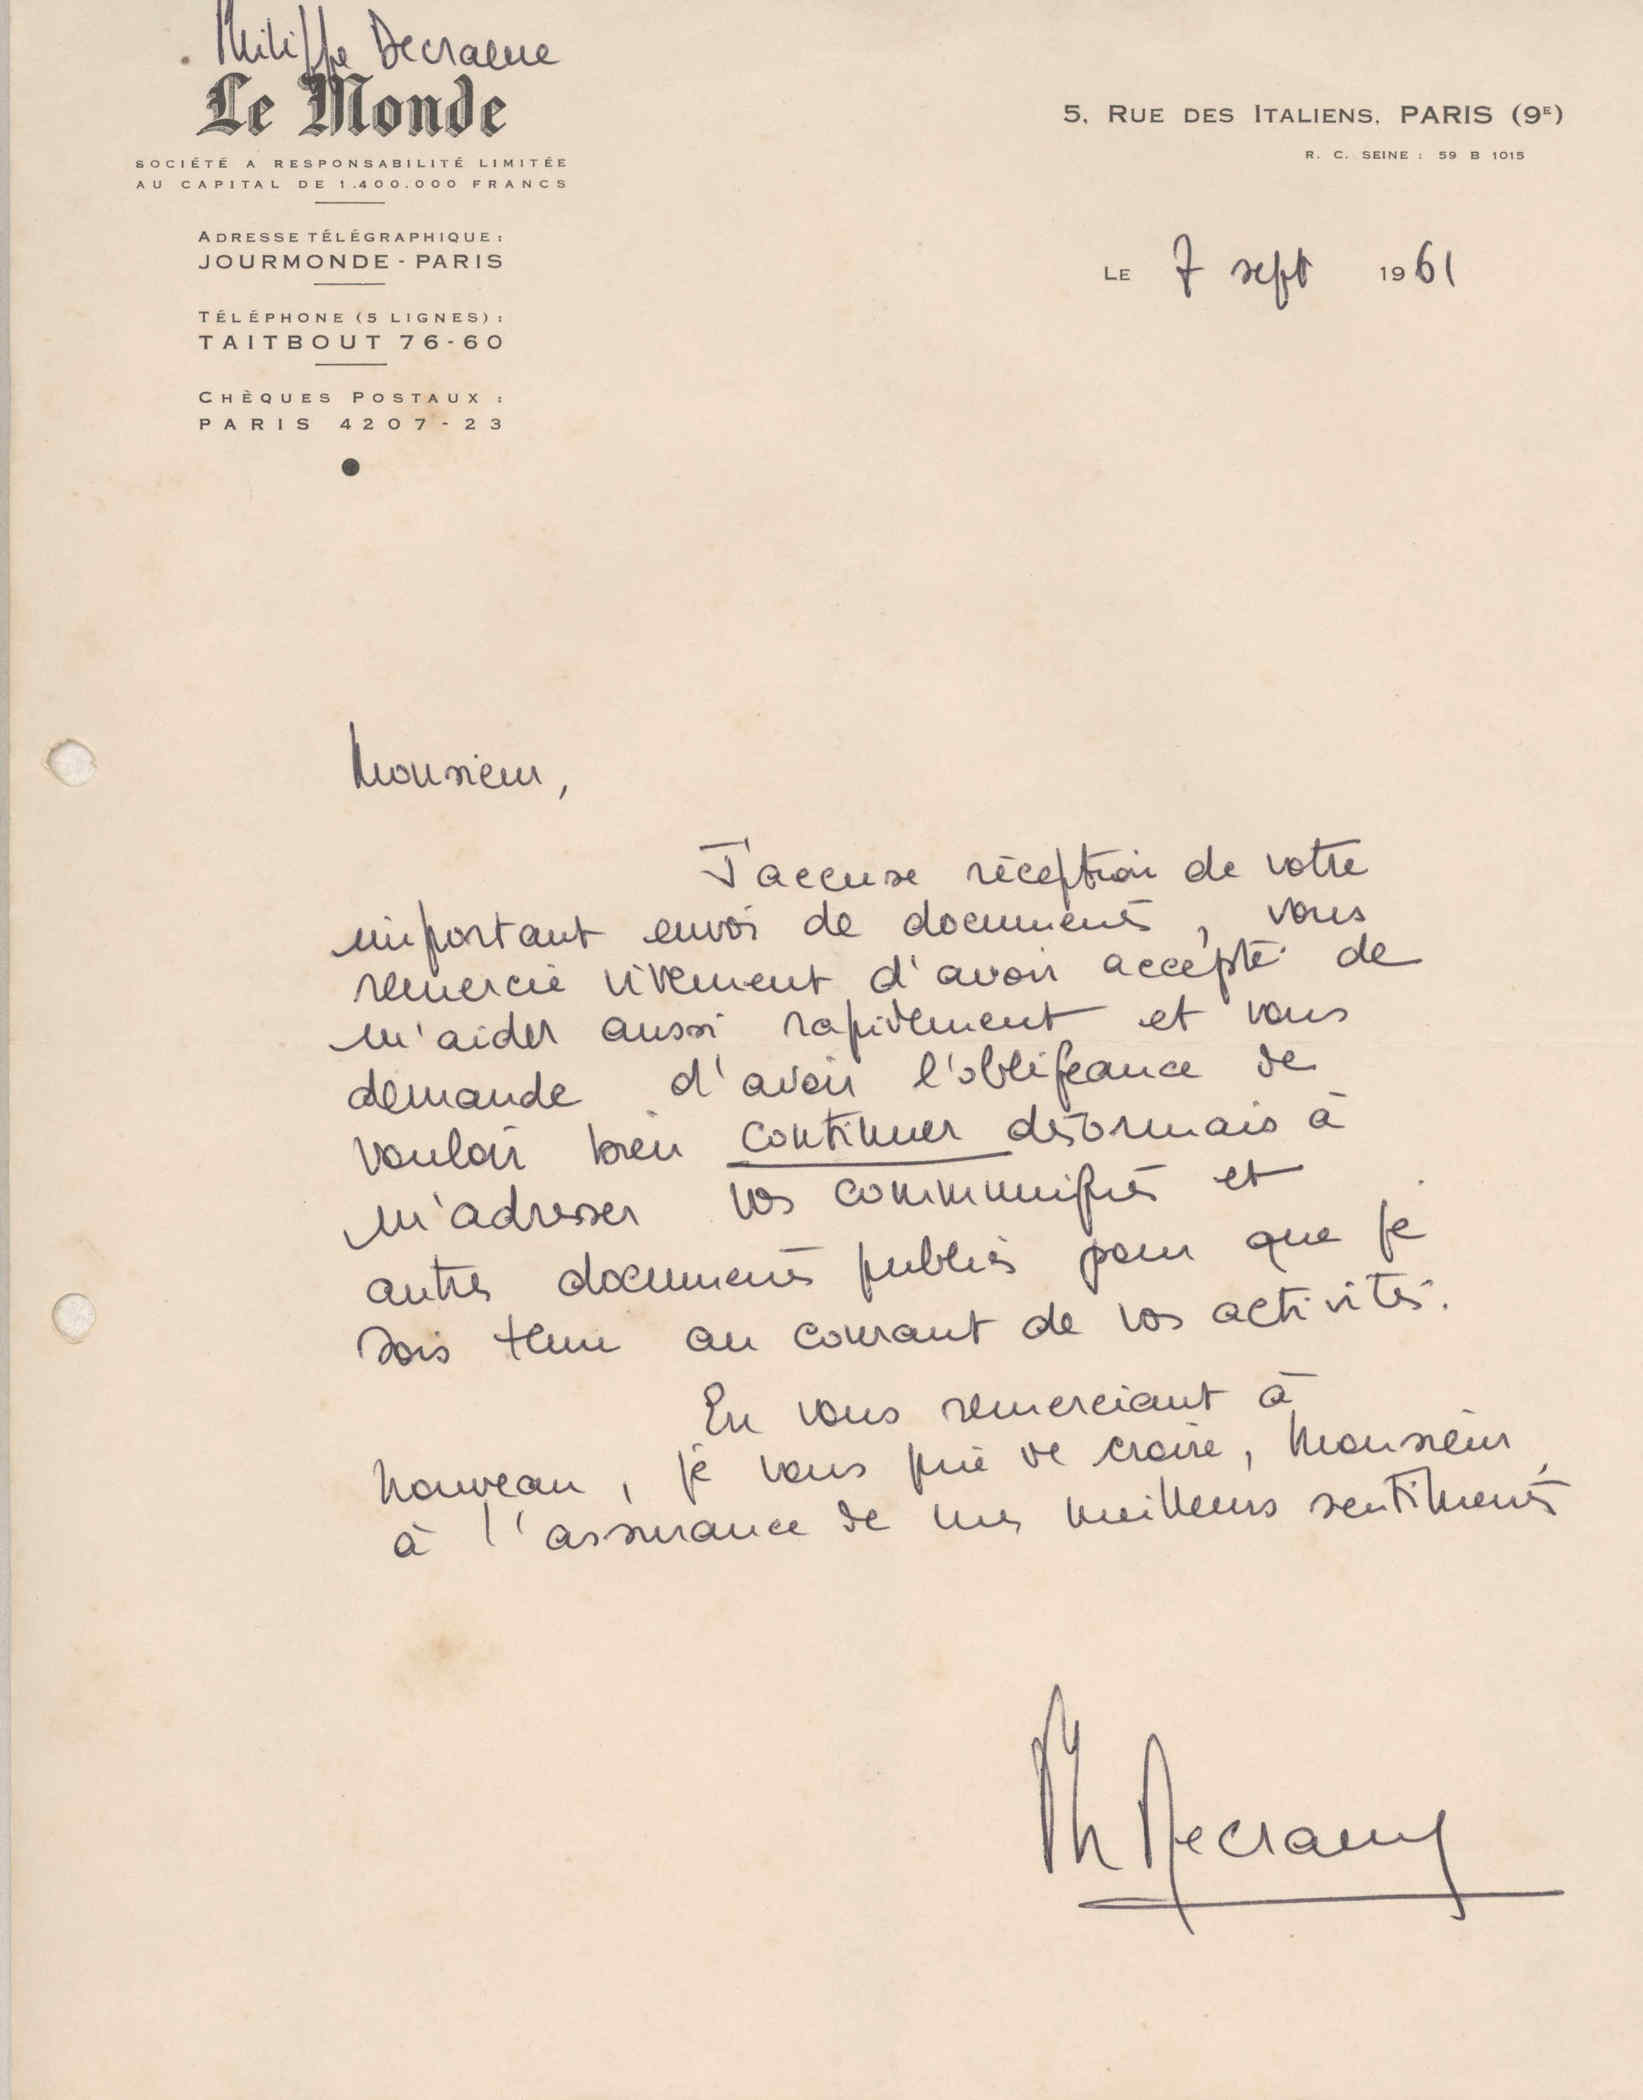 Philippe Decraene
Le Monde
SOCIÉTÉ A RESPONSABILITÉ LIMITÉE
AU CAPITAL DE 1.400.000 FRANCS
ADRESSE TÉLÉGRAPHIQUE :
JOURMONDE - PARIS
TÉLÉPHONE (5 LIGNES) :
TAITBOUT 76-60
CHÈQUES POSTAUX :
PARIS 4207-23
5, RUE DES ITALIENS, PARIS (9E)
R. C. SEINE : 59 B 1015
LE 7 sept 1961
Monsieur,
J'accuse réception de votre
important envoi de documents, vous
remercie vivement d'avoir accepté de
m'aider aussi rapidement et vous
demande d'avoir l'obligeance de
vouloir bien continuer désormais à
m'adresser vos communiqués et
autres documents publiés pour que je
sois tenu au courant de vos activités.
En vous remerciant à
nouveau, je vous prie de croire, Monsieur,
à l'assurance de mes meilleurs sentiments
Ph Decraene